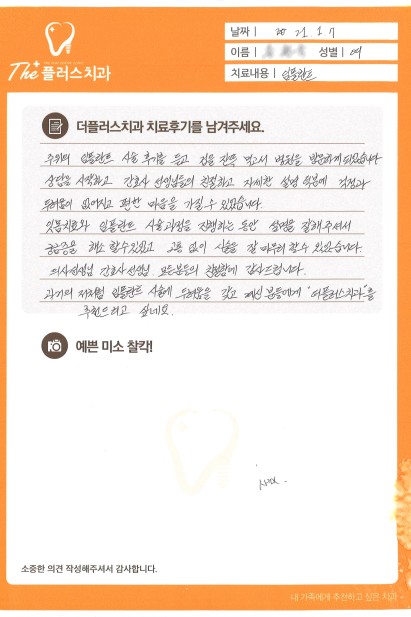 The+ 플러스치과
날짜 | 2021. 1. 7
이름 | 성별 | 여
치료내용 | 임플란트
더플러스치과 치료후기를 남겨주세요.
주위의 임플란트 시술 후기를 듣고 겁을 잔뜩 먹고서 병원을 방문하게 되었습니다
상담을 시작하고 간호사 선생님들의 친절하고 자세한 설명 덕분에 걱정과
두려움이 없어지고 편한 마음을 가질 수 있었습니다.
잇몸치료와 임플란트 시술과정을 진행하는 동안 설명을 잘해주셔서
궁금증을 해소 할수있었고 고통 없이 시술을 잘 마무리 할수 있었습니다.
의사선생님 간호사 선생님 모든분들의 친절함에 감사드립니다.
과거의 저처럼 임플란트 시술에 두려움을 갖고 계신 분들에게 "더플러스치과"를
추천드리고 싶네요.
예쁜 미소 찰칵!
소중한 의견 작성해주셔서 감사합니다.
내 가족에게 추천하고 싶은 치과